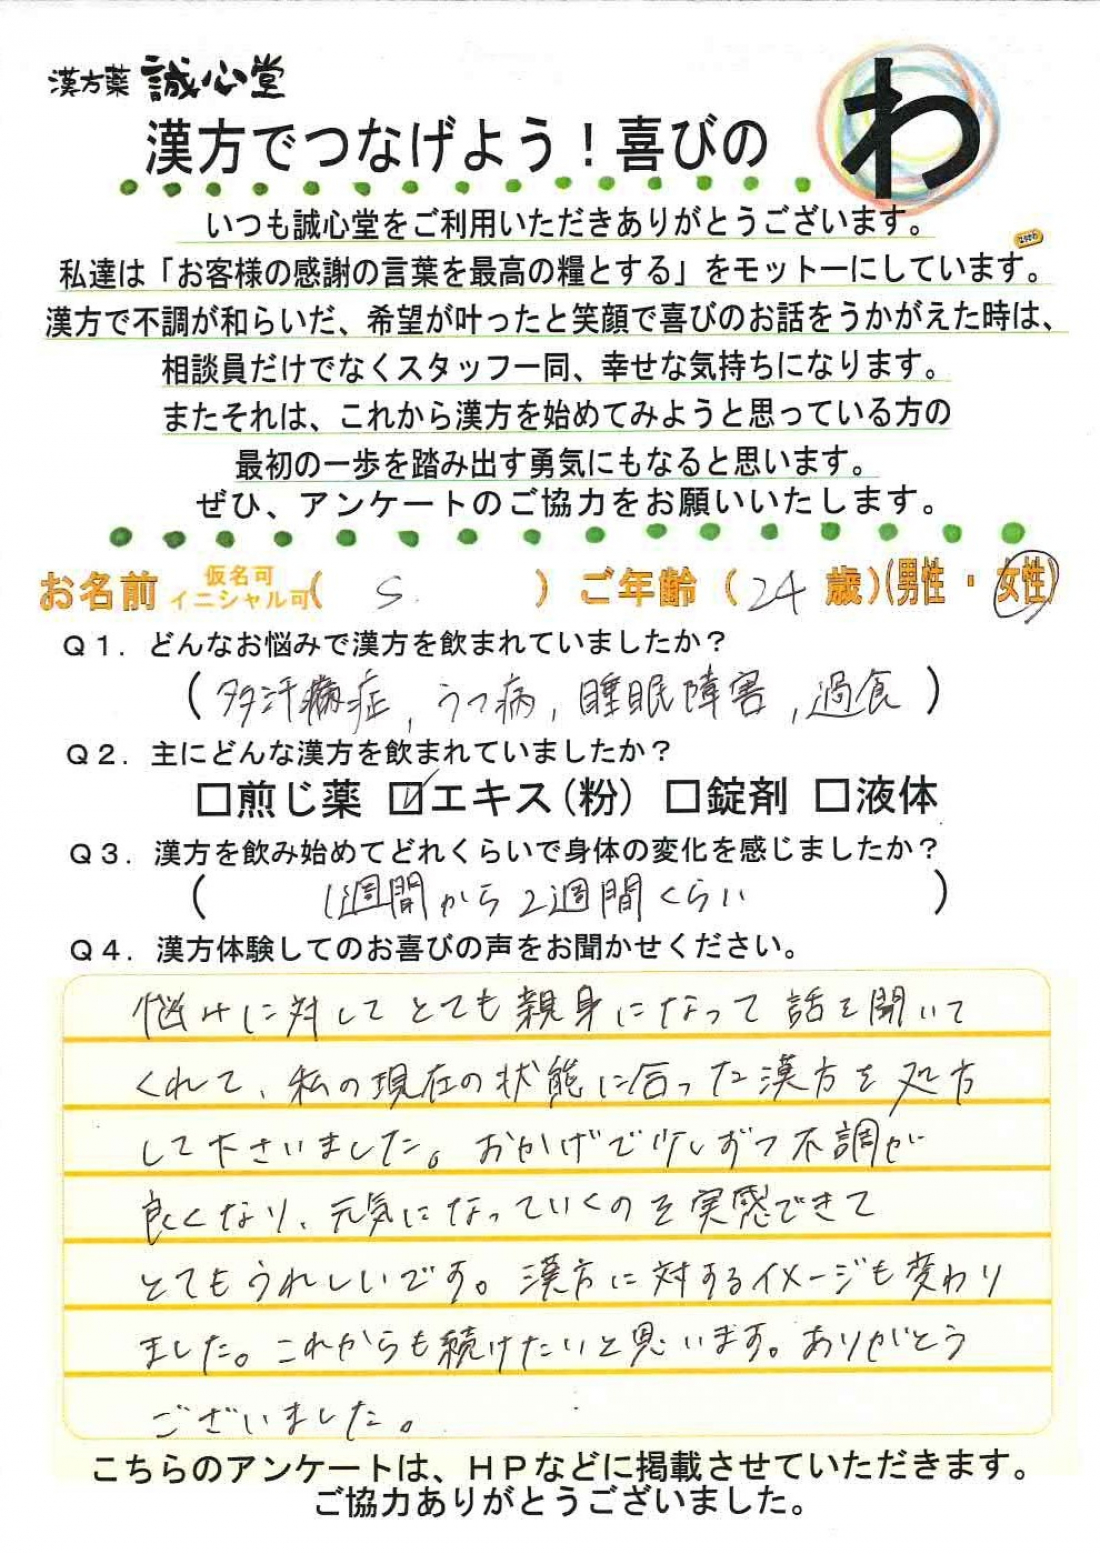 漢方薬 誠心堂
漢方でつなげよう！喜びの わ
いつも誠心堂をご利用いただきありがとうございます。
私達は「お客様の感謝の言葉を最高の糧とする」をモットーにしています。
漢方で不調が和らいだ、希望が叶ったと笑顔で喜びのお話をうかがえた時は、
相談員だけでなくスタッフ一同、幸せな気持ちになります。
またそれは、これから漢方を始めてみようと思っている方の
最初の一歩を踏み出す勇気にもなると思います。
ぜひ、アンケートのご協力をお願いいたします。
お名前 仮名可 イニシャル可( S. ) ご年齢 ( 24 歳)(男性 ・ 女性)
Q1. どんなお悩みで漢方を飲まれていましたか？
(多汗症, うつ病, 睡眠障害, 過食)
Q2. 主にどんな漢方を飲まれていましたか？
□煎じ薬 ☑エキス(粉) □錠剤 □液体
Q3. 漢方を飲み始めてどれくらいで身体の変化を感じましたか？
( 1週間から2週間くらい )
Q4. 漢方体験してのお喜びの声をお聞かせください。
悩みに対してとても親身になって話を聞いて
くれて、私の現在の状態に合った漢方を処方
して下さいました。おかげで少しずつ不調が
良くなり、元気になっていくのを実感できて
とてもうれしいです。漢方に対するイメージも変わり
ました。これからも続けたいと思います。ありがとう
ございました。
こちらのアンケートは、HPなどに掲載させていただきます。
ご協力ありがとうございました。